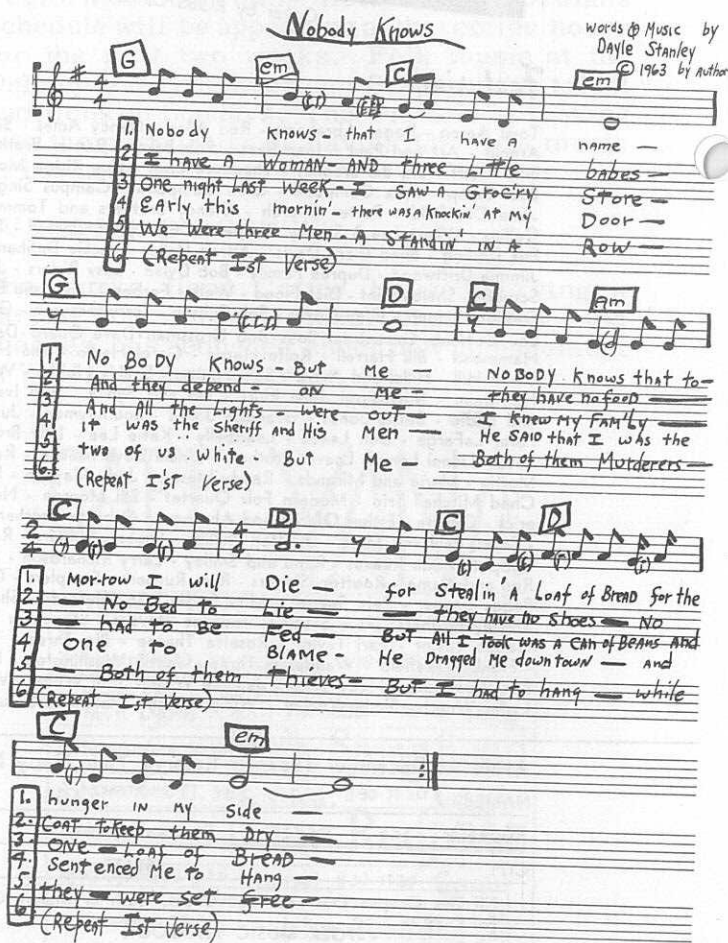 Nobody Knows
words & Music by
Dayle Stanley
© 1963 by Author
G em C em
4
4
1. Nobody knows - that I have a name —
2 I have A WOMAN - AND three Little babes —
3 One night LAST Week - I SAW A Groc'ry Store —
4 EArly this mornin' - there was a knockin' at My Door —
5 We Were three Men - A Standin' IN A Row —
6 (Repeat Ist Verse)
G D C Am
1. NoBoDY KNOWS - But Me NOBODY Knows that to-
2 And they depend - on Me — they have no food —
3 And All the Lights - were out — I Knew MY FAMILY —
4 it was the sheriff And His Men — He SAID that I was the
5. two of us white - But Me — Both of them Murderers —
6. (Repeat I'st Verse)
C D C D
2
4
4
4
1. Mor-row I will Die — for Stealin A Loaf of Bread for the
2. — No Bed to Lie — — they have no shoes — No
3 — had to Be Fed — But All I took was A CAN of Beans And
4 One to BLAME — He Dragged Me down town — and
5 Both of them Thieves — But I had to hang — while
6 (Repeat Ist Verse)
C em
1. hunger in my side —
2. Coat to keep them Dry —
3. ONE — Loaf of Bread —
4. Sentenced Me to Hang —
5. they — were set free —
6 (Repeat Ist Verse)